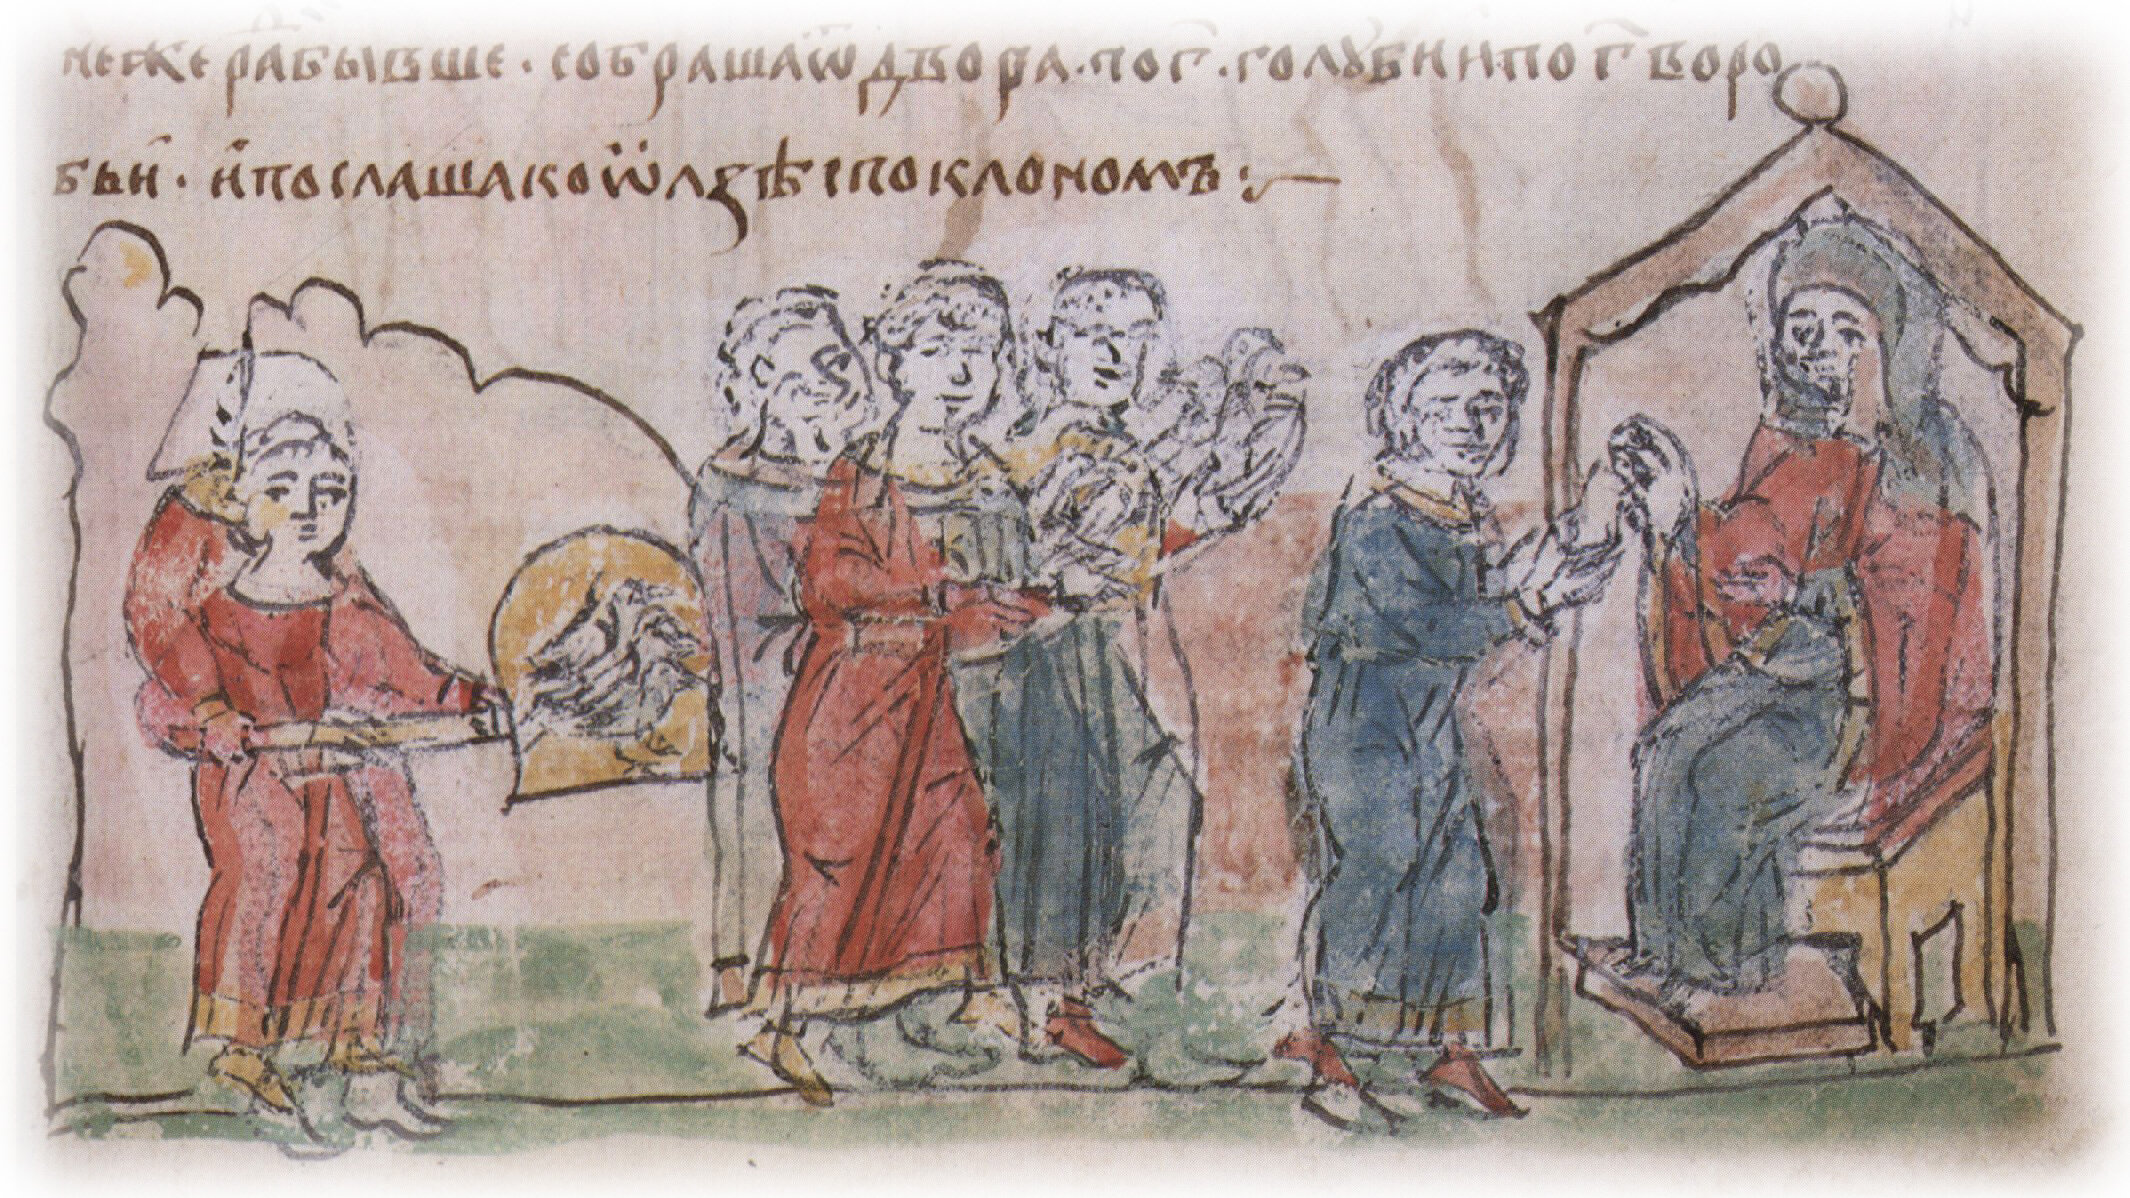 нежеради бывше · собрашаѿдвора · пог҃ · голꙋбиипог҃воро
бьи · ипослашакоѡлзѣспоклономъ :~